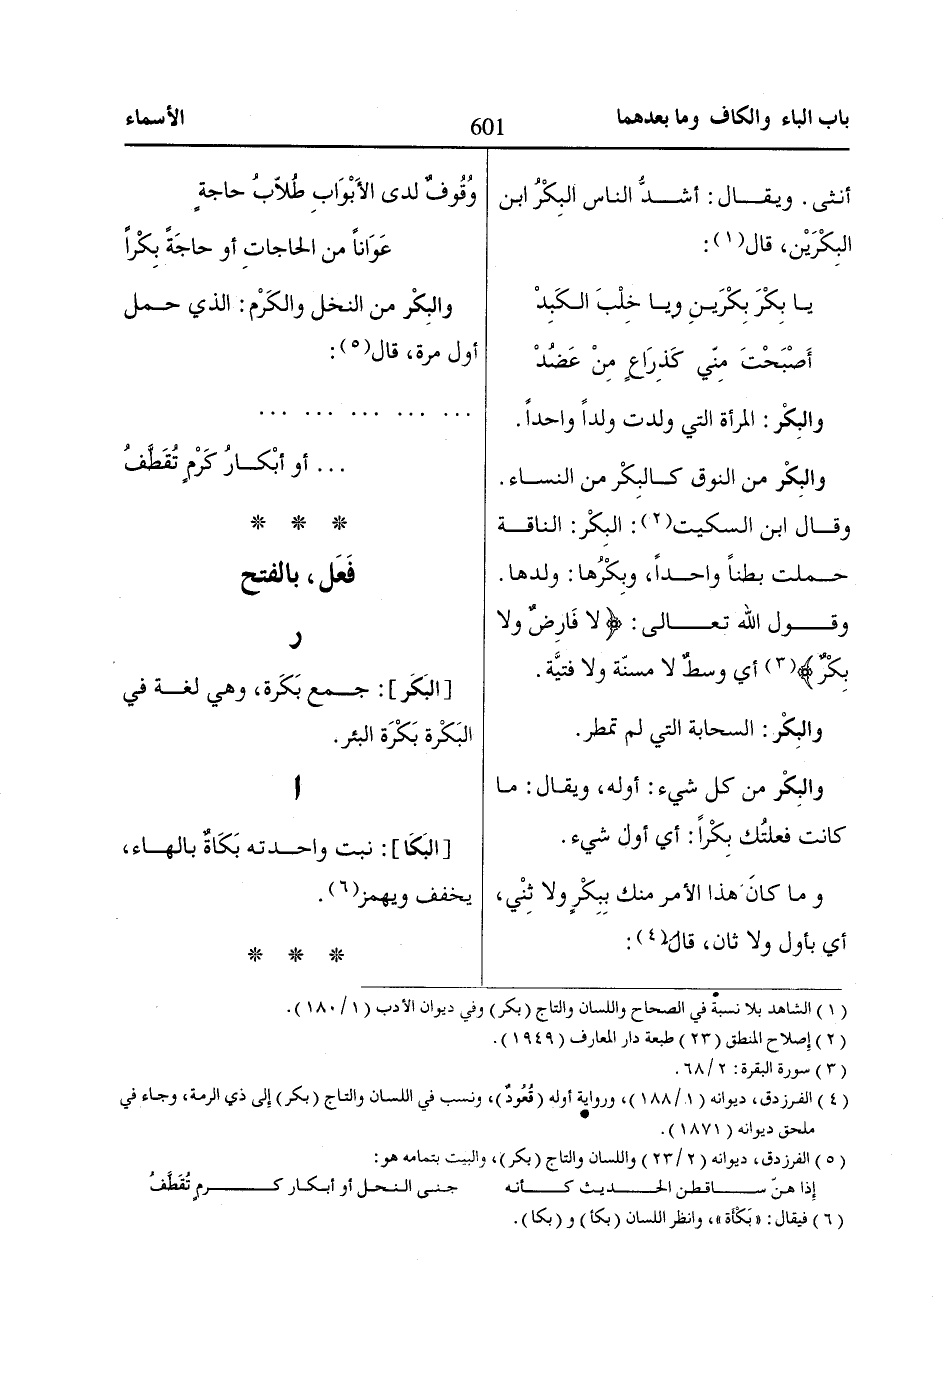 باب الباء والكاف وما بعدهما
601
الأسماء
أنثى. ويقـــال: أشـــدُّ الناس البِكْرُ ابن
البِكْرَيْن، قال(١):
يـا بِكْرَ بِكْرَيـنِ ويـا خِلْبَ الـكَبِدْ
أَصْبَحْتَ مِنّي كَذِرَاعٍ مِنْ عَضُدْ
والبِكْر: المرأة التي ولدت ولداً واحداً.
والبِكْر من النوق كـالبِكْر من النساء.
وقـال ابن السكيت(٢): البِكْر: الناقـة
حـملت بطناً واحـداً، وبِكْرُها: ولدها.
وقـــول الله تعـــالى: ﴿لا فَارِضٌ ولا
بِكْرٌ﴾(٣) أي وسطٌ لا مسنّة ولا فتيَّة.
والبِكْر: السحابة التي لم تمطر.
والبِكْر من كل شيء: أوله، ويقال: ما
كانت فعلتُك بِكْراً: أي أول شيء.
و ما كانَ هذا الأمر منك ببِكْرٍ ولا ثِنْي،
أي بأول ولا ثان، قال(٤):
وُقُوفٌ لدى الأَبْوَابِ طُلاّبُ حاجةٍ
عَوَاناً من الحاجاتِ أو حاجَةً بِكْراً
والبِكْر من النخل والكَرْم: الذي حـمل
أول مرة، قال(٥):
... ... ... ... ...
... أو أبْكـارُ كَرْمٍ تُقَطَّفُ
* * *
فَعَل، بالفتح
ر
[البَكَر]: جـمع بَكَرة، وهي لغـة في
البَكْرة بَكْرَة البئر.
ا
[البَكَا]: نبت واحـدته بَكَاةٌ بالهـاء،
يخفف ويهمز(٦).
* * *
(١) الشاهد بلا نسبة في الصحاح واللسان والتاج (بكر) وفي ديوان الأدب (١/ ١٨٠).
(٢) إصلاح المنطق (٢٣) طبعة دار المعارف (١٩٤٩).
(٣) سورة البقرة: ٢/ ٦٨.
(٤) الفرزدق، ديوانه (١/ ١٨٨)، ورواية أوله (قُعُودٌ)، ونسب في اللسان والتاج (بكر) إلى ذي الرمة، وجاء في
ملحق ديوانه (١٨٧١).
(٥) الفرزدق، ديوانه (٢/ ٢٣) واللسان والتاج (بكر)، والبيت بتمامه هو:
إذا هنّ ســـاقطن الحـــديث كـــأنه جنـى النـحل أو أبـكار كـــرم تُقَطَّفُ
(٦) فيقال: «بَكْأة»، وانظر اللسان (بكأ) و (بكا).